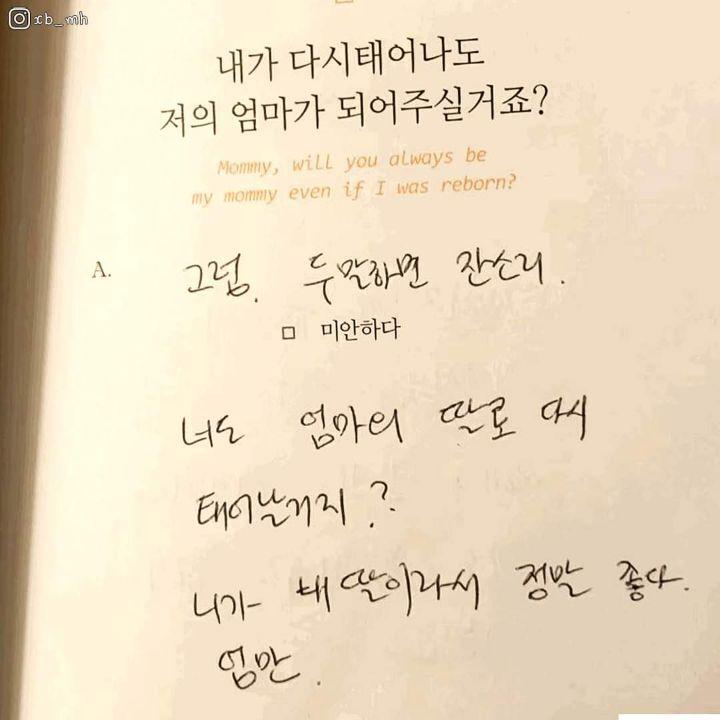 xb_mh
내가 다시태어나도
저의 엄마가 되어주실거죠?
Mommy, will you always be
my mommy even if I was reborn?
A. 그럼. 두말하면 잔소리.
□ 미안하다
너도 엄마의 딸로 다시
태어날거지?
니가 내 딸이라서 정말 좋다.
엄만.